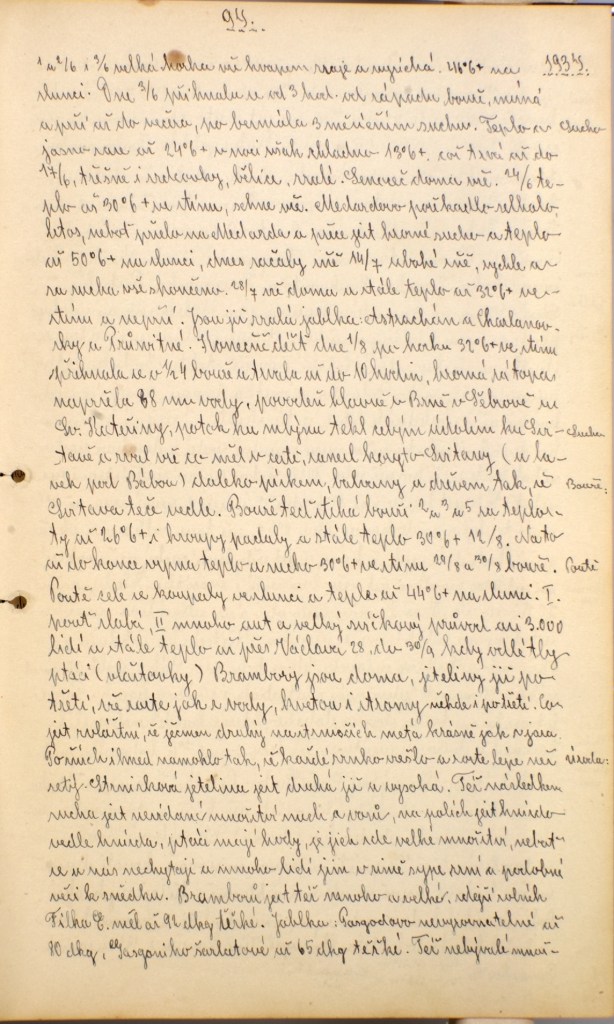 94.
1 a 2/6 i 3/6 velká horka vše kvapem zraje a vysýchá. 46°C+ na 1934.
slunci. Dne 3/6 přihnala se od 3 hod. od západu bouře, mírná
a prší až do večera, po bezmála 3 měsíčním suchu. Teplo a Sucho
jasno zase až 24°C+ v noci však chladno 13°C+. což trvá až do
17/6, třešně i srdcovky, bělice, zralé. Senoseč doma vše. 24/6 te-
plo až 30°C+ ve stínu, schne vše. Medardovo pořekadlo selhalo
letos, neboť pršelo na Medarda a přece jest hrozné sucho a teplo
až 50°C+ na slunci, dnes začaly žně 14/7 ubohé žně, rychle a
za sucha vše skončeno. 28/7 vše doma a stále teplo až 32°C+ ve
stínu a neprší. Jsou již zralá jablka: Astrachán a Charlamov-
sky a Průsvitné. Konečně déšť dne 1/8 po horku 32°C+ ve stínu
přihnala se o 1/4 4 bouře a trvala až do 10 hodin, hrozná zátopa
napršelo 88 mm vody, povodeň hlavně v Brně v Šebrově u
Sv. Kateřiny, potok ku mlýnu tekl celým údolím ku Svi- Sucho
tavě a rval vše co měl v cestě, zanesl koryto Svitavy (u la-
vek pod Bábou) daleko pískem, balvany a dřívem tak, že Bouře:
Svitava teče vedle. Bouře teď stíhá bouři 2 a 3 a 5 za teplo-
ty až 26°C+ i kroupy padaly a stále teplo 30°C+ 12/8. Na to
až do konce srpna teplo a sucho 30°C+ ve stínu 29/8 a 30/8 bouře. Poutě
Poutě celé se koupaly ve slunci a teple až 44°C+ na slunci. I.
pouť slabší, II mnoho aut a velký svíčkový průvod asi 3.000
lidí a stále teplo až přes Václava 28. do 30/9, kdy odlétly
ptáci (vlaštovky) Brambory jsou doma, jeteliny již po-
třetí, vše roste jak z vody, kvetou i stromy někde i potřetí. Co
jest zvláštní, že ječmen druhý na strništích metá krásně jak z jara.
Po žních ihned namoklo tak, že každé zrnko vzešlo a roste lépe než úroda:
setý. Strnisková jetelina jest druhá již a vysoká. Též následkem
sucha jest nevídané množství much a vosů, na polích jest hnízdo
vedle hnízda, ptáci mají hody, je jich zde velké množství, neboť
se u nás nechytají a mnoho lidí jim v zimě sype zrní a podobné
věci k snědku. Bramborů jest též mnoho a velké, zdejší rolník
Filka E. měl až 92 dkg těžké. Jablka: Pasgodovo nevyrovnatelné až
80 dkg, Gasgoniho šarlatové až 65 dkg těžké. Též nebývalé množ-